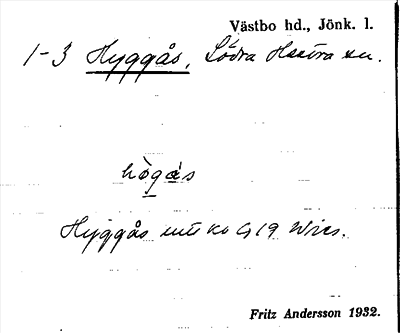 Västbo hd., Jönk. l.
1-3 Hyggås, Södra Hestra sn.
hògás
Hyggås
Fritz Andersson 1932.